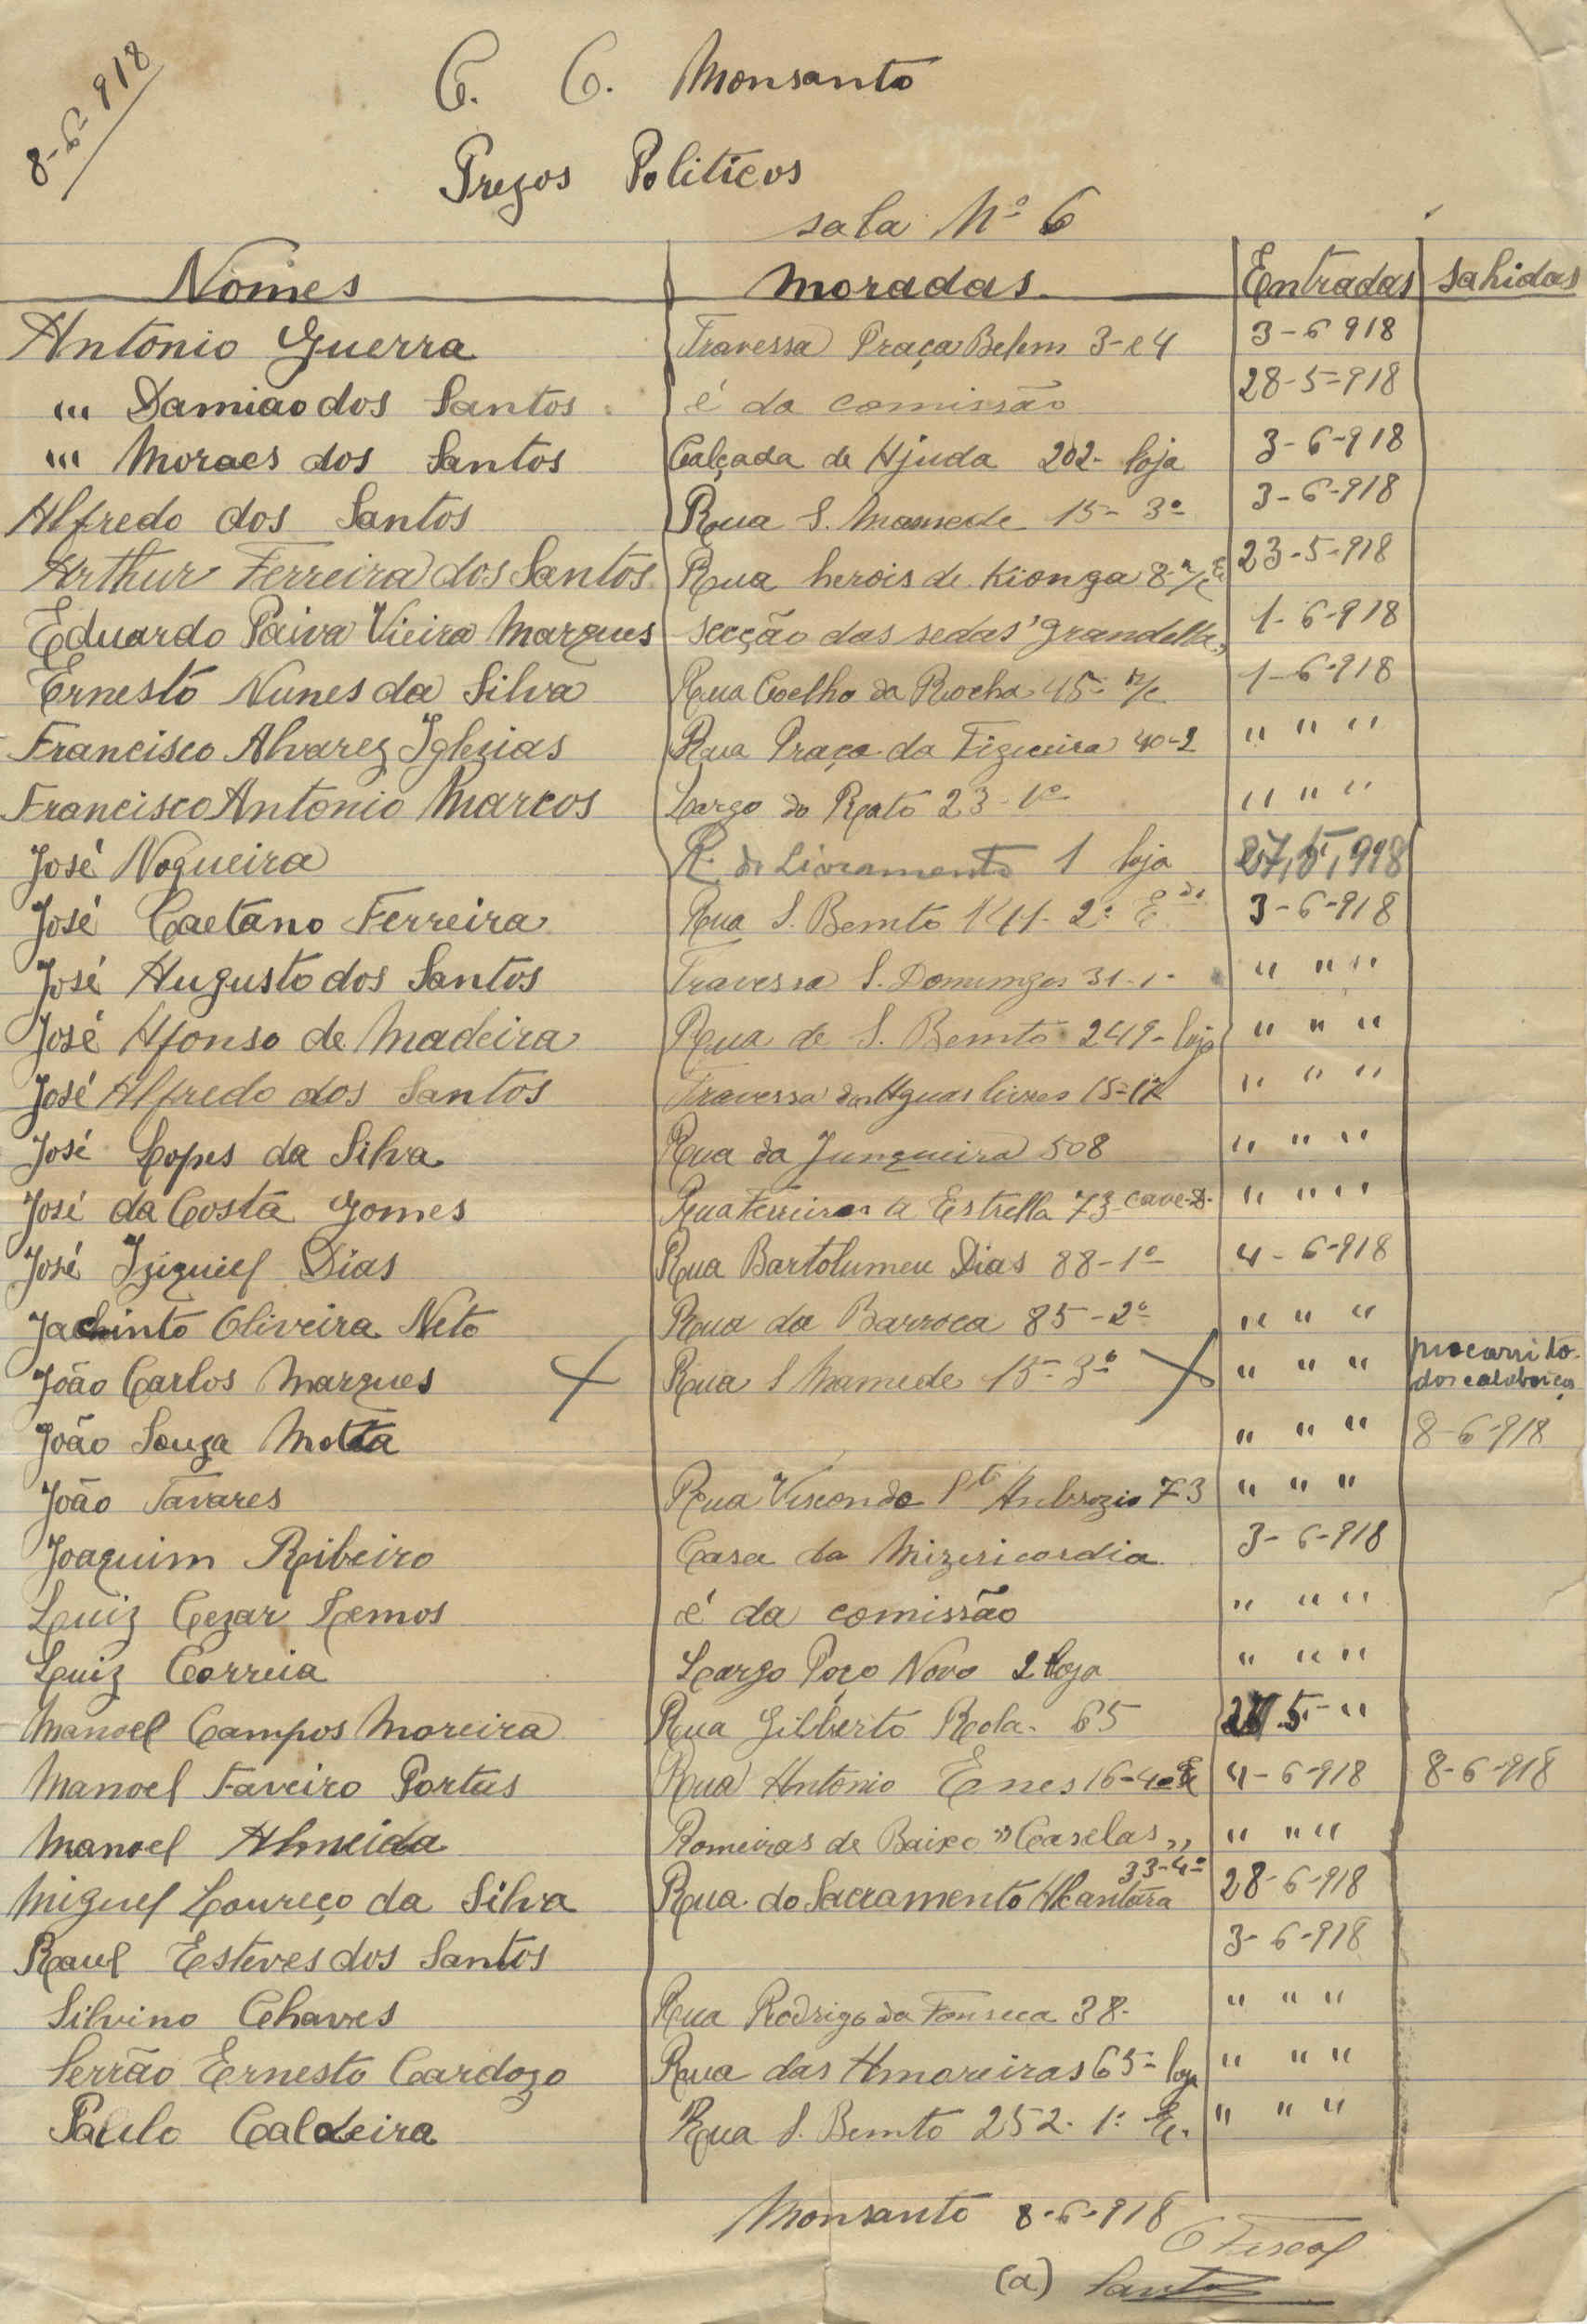 8-6-918
C. C. Monsanto
Prezos Politicos
sala Nº 6
Nomes moradas Entradas sahidas
Antonio Guerra Travessa Praça Belem 3-e 4 3-6 918
"' Damiao dos Santos é da comissão 28-5-918
"' Moraes dos Santos Calçada de Ajuda 202- loja 3-6-918
Alfredo dos Santos Rua S. Mamede 15- 3º 3-6-918
Arthur Ferreira dos Santos Rua herois de Kionga 8- r/c E 23-5-918
Eduardo Paiva Vieira Marques secção das sedas "grandella" 1-6-918
Ernesto Nunes da Silva Rua Coelho da Rocha 45- r/c 1-6-918
Francisco Alvarez Iglezias Rua Praça da Figueira 40-2 " " "
Francisco Antonio Marcos Largo do Rato 23-1º " " "
José Nogueira R. do Livramento 1 loja 27,5,918
José Caetano Ferreira Rua S. Bemto 2º E.do 3-6-918
José Augusto dos Santos Travessa S. Domingos 31-1- " " "
José Afonso de Madeira Rua de S. Bemto 249- loja " " "
José Alfredo dos Santos Travessa das Aguas livres 15- " " "
José Lopes da Silva Rua da Junqueira 508 " " "
José da Costa Gomes Rua Ferreira a Estrella 73-cave-D. " " "
José Iziquiel Dias Rua Bartolumeu Dias 88-1º 4-6-918
Jachinto Oliveira Neto Rua da Barroca 85-2º " " "
João Carlos Marques X Rua S Mamede 15-3º X " " "
dos calaboiços
João Souza Motta " " " 8-6-918
João Tavares Rua Visconde Sto Ambrozio 73 " " "
Joaquim Ribeiro Casa da Mizericordia 3-6-918
Luiz Cezar Lemos é da comissão " " "
Luiz Correia Largo Poço Novo 2 loja " " "
Manoel Campos Moreira Rua Gilberto Rola- 65 5- "
Manoel Faveiro Portas Rua Antonio Enes 16-4º E 4-6-918 8-6-918
Manoel Almeida Romeiras de Baixo "Caselas" " " "
33-4º
Miguel Loureço da Silva Rua do Sacramento Alcantara 28-6-918
Raul Esteves dos Santos 3-6-918
Silvino Chaves Rua Rodrigo da Fonseca 38- " " "
Serrão Ernesto Cardozo Rua das Amoreiras 65- loja " " "
Paulo Caldeira Rua S. Bemto 252- 1º E. " " "
Monsanto 8-6-918
O Fiscal
(a) Santos